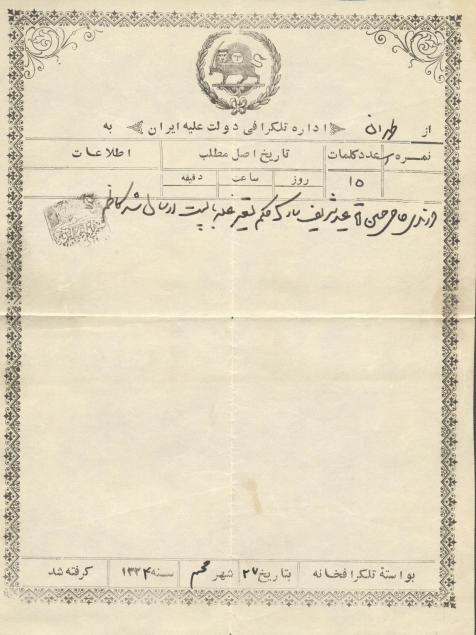 از طهران اداره تلگرافی دولت علیه ایران به
نمره عدد کلمات تاریخ اصل مطلب اطلاعات
۱۵ روز ساعت دقیقه
حاجی حسین آقا عید شریف مبارک حکم تغییر با پست ارسال شد کاظم
بواسطۀ تلگرافخانه بتاریخ ۲۷ شهر محرم سنه ۱۳۳۴ گرفته شد